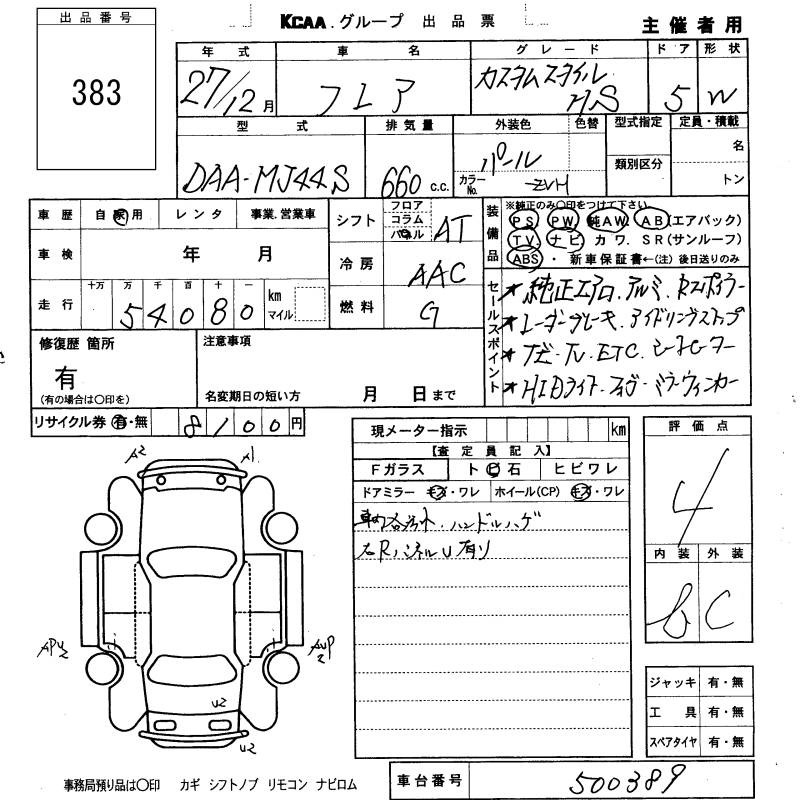 出品番号
383
KCAA.グループ 出品票
主催者用
年式 車名 グレード ドア 形状
27/12月 フレア カスタムスタイル HS 5 W
型式 排気量 外装色 色替 型式指定 定員・積載
DAA-MJ44S 660 c.c. パール カラーNo. ZVH 類別区分 名 トン
車歴 自家用 レンタ 事業.営業車
車検 年 月
走行 十万 万 千 百 十 一
54080 km マイル
シフト フロア コラム パネル AT
冷房 AAC
燃料 G
装備品
※純正のみ〇印をつけて下さい
PS PW 純AW. AB(エアバック)
TV. ナビ カワ. SR(サンルーフ)
ABS ・ 新車保証書←(注)後日送りのみ
セールスポイント
★純正エアロ.アルミ.Rスポイラー
★レーダーブレーキ.アイドリングストップ
★ナビ・TV.ETC.シートヒーター
★HIDライト.フォグ・ミラーウィンカー
修復歴 箇所
有
(有の場合は〇印を)
注意事項
名変期日の短い方 月 日まで
リサイクル券 有・無 8100円
現メーター指示 km
【査定員記入】
Fガラス トビ 石 ヒビワレ
ドアミラー キズ・ワレ ホイール(CP) キズ・ワレ
ハンドルハゲ
右RパネルU有り
評価点
4
内装 外装
B C
A2 A1
U2
U2
ジャッキ 有・無
工具 有・無
スペアタイヤ 有・無
事務局預り品は〇印 カギ シフトノブ リモコン ナビロム
車台番号 500389